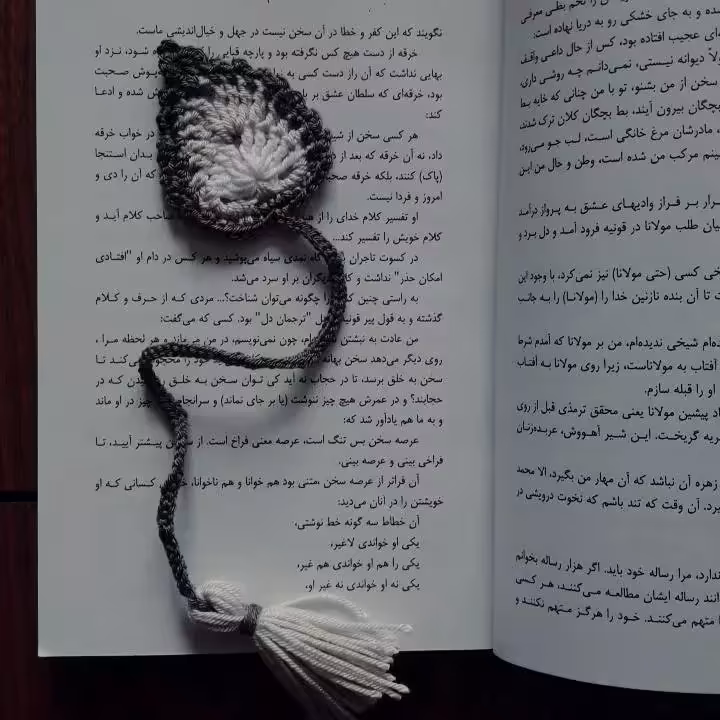 نگویند که این کفر و خطا در آن سخن نیست در جهل و خیال‌اندیشی ماست.
خرقه از دست هیچ کس نگرفته بود و پارچه قبایی را که شود، نزد او
بهایی نداشت که آن راز دست کسی به پوش صحبت
بود، خرقه‌ای که سلطان عشق بر شده و ادعا
کند:
هر کسی سخن از شیخ در خواب خرقه
داد، نه آن خرقه که بعد از بدان استنجا
(پاک) کنند، بلکه خرقه صحبت که آن را دی و
امروز و فردا نیست.
او تفسیر کلام خدای را از صاحب کلام آید و
کلام خویش را تفسیر کند...
در کسوت تاجران گاه نمدی سیاه می‌پوشید و هر کس در دام او "افتادی
امکان حذر" نداشت و کار دیگران بر او سرد می‌شد.
به راستی چنین را چگونه می‌توان شناخت؟... مردی که از حرف و کلام
گذشته و به قول پیر قونیه "ترجمان دل" بود. کسی که می‌گفت:
من عادت به نبشتن نداشته‌ام، چون نمی‌نویسم، در من می‌ماند و هر لحظه مرا ،
روی دیگر می‌دهد سخن بهانه خود را محجوب می‌کند تا
سخن به خلق برسد، تا در حجاب نه آید کی توان سخن به خلق رسیدن که در
حجابند؟ و در عمرش هیچ چیز ننوشت (یا بر جای نماند) و سرانجام چیز در او ماند
و به ما هم یادآور شد که:
عرصه سخن بس تنگ است، عرصه معنی فراخ است. از سخن پیشتر آیید، تا
فراخی بینی و عرصه بینی.
آن فراتر از عرصه سخن ،متنی بود هم خوانا و هم ناخوانا، کسانی که او
خویشتن را در آنان می‌دید:
آن خطاط سه گونه خط نوشتی،
یکی او خواندی لاغیر،
یکی را هم او خواندی هم غیر،
یکی نه او خواندی نه غیر او،
شده و به جای خشکی رو به دریا نهاده است:
عجیب افتاده بود، کس از حال داعی واقف
دیوانه نیستی، نمی‌دانم چه روشی داری،
سخن از من بشنو، تو با من چنانی که خایه بط
بچگان بیرون آیند، بط بچگان کلان ترک شدند،
مادرشان مرغ خانگی است، لب جو می‌رود،
مرکب من شده است، وطن و حال من این
بر فراز وادیهای عشق به پرواز درآمد
طلب مولانا در قونیه فرود آمد و دل برد و
کسی (حتی مولانا) نیز نمی‌کرد، با وجود این
تا آن بنده نازنین خدا را (مولانا) را به جانب
شیخی ندیده‌ام، من بر مولانا که آمدم شرط
آفتاب به مولاناست، زیرا روی مولانا به آفتاب
او را قبله سازم.
پیشین مولانا یعنی محقق ترمذی قبل از روی
گریخت. این شیر آهووش، عربده‌زنان
زهره آن نباشد که آن مهار من بگیرد، الا محمد
آن وقت که تند باشم که نخوت درویشی در
ندارد، مرا رساله خود باید. اگر هزار رساله بخوانم
رساله ایشان مطالعه می‌کنند، هر کسی
متهم می‌کنند. خود را هرگز متهم نکنند و